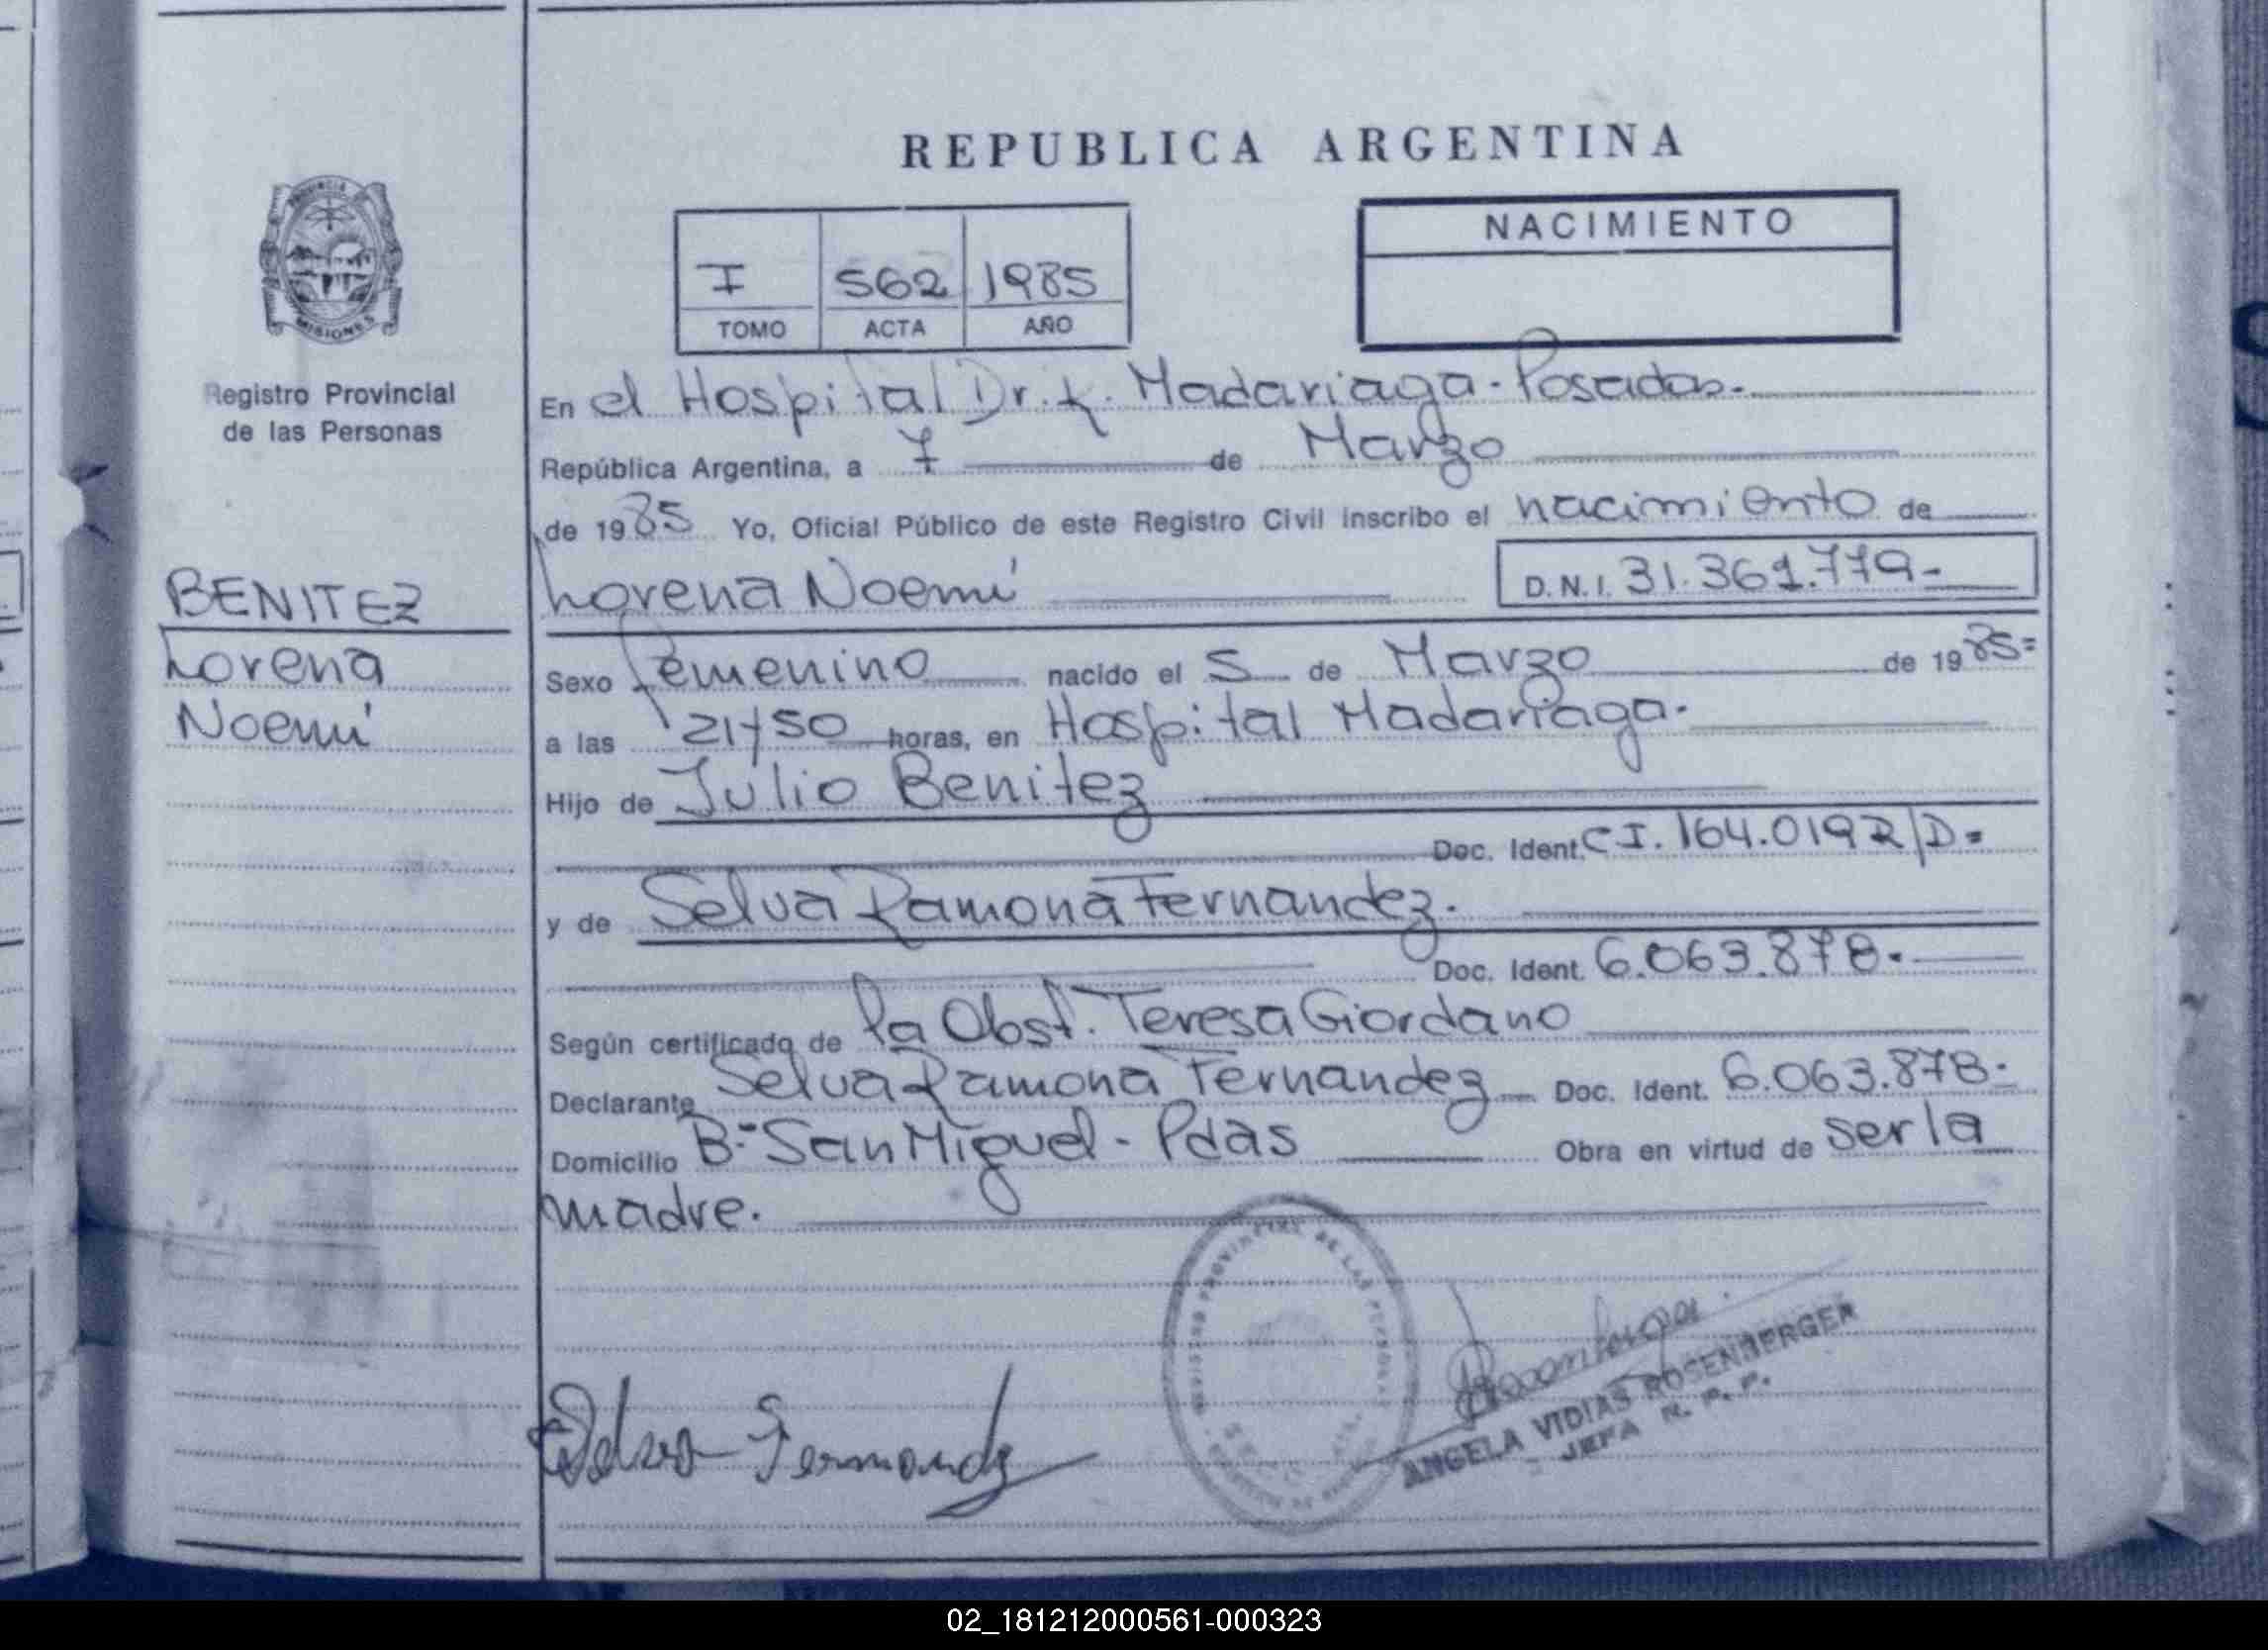 REPUBLICA ARGENTINA
PROVINCIA
MISIONES
Registro Provincial
de las Personas
I 562 1985
TOMO ACTA AÑO
NACIMIENTO
En el Hospital Dr. R. Madariaga - Posadas.
República Argentina, a 7 de Marzo
de 1985 Yo, Oficial Público de este Registro Civil inscribo el nacimiento de
Lorena Noemí D.N.I. 31.361.779-
BENITEZ
Lorena
Noemí
Sexo femenino nacido el 5 de Marzo de 1985=
a las 21y50 horas, en Hospital Madariaga.
Hijo de Julio Benitez
Doc. Ident. C I. 164.0192/D=
y de Selva Ramona Fernandez.
Doc. Ident. 6.063.878.
Según certificado de la Obst. Teresa Giordano
Declarante Selva Ramona Fernandez Doc. Ident. 6.063.878.
Domicilio B.º San Miguel - Pdas Obra en virtud de ser la
madre.
REGISTRO PROVINCIAL DE LAS PERSONAS
Selva Fernandez
ANGELA VIDIAS ROSENBERGER
JEFA R. P. P.
02_181212000561-000323